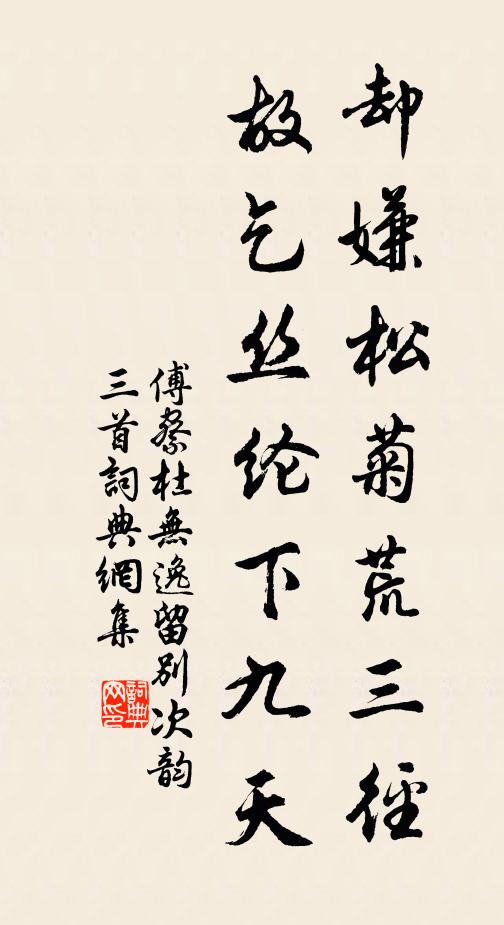 却嫌松菊荒三径
故乞丝纶下九天
傅察杜無逸留別次韵
三首詞典網集
詞典网印